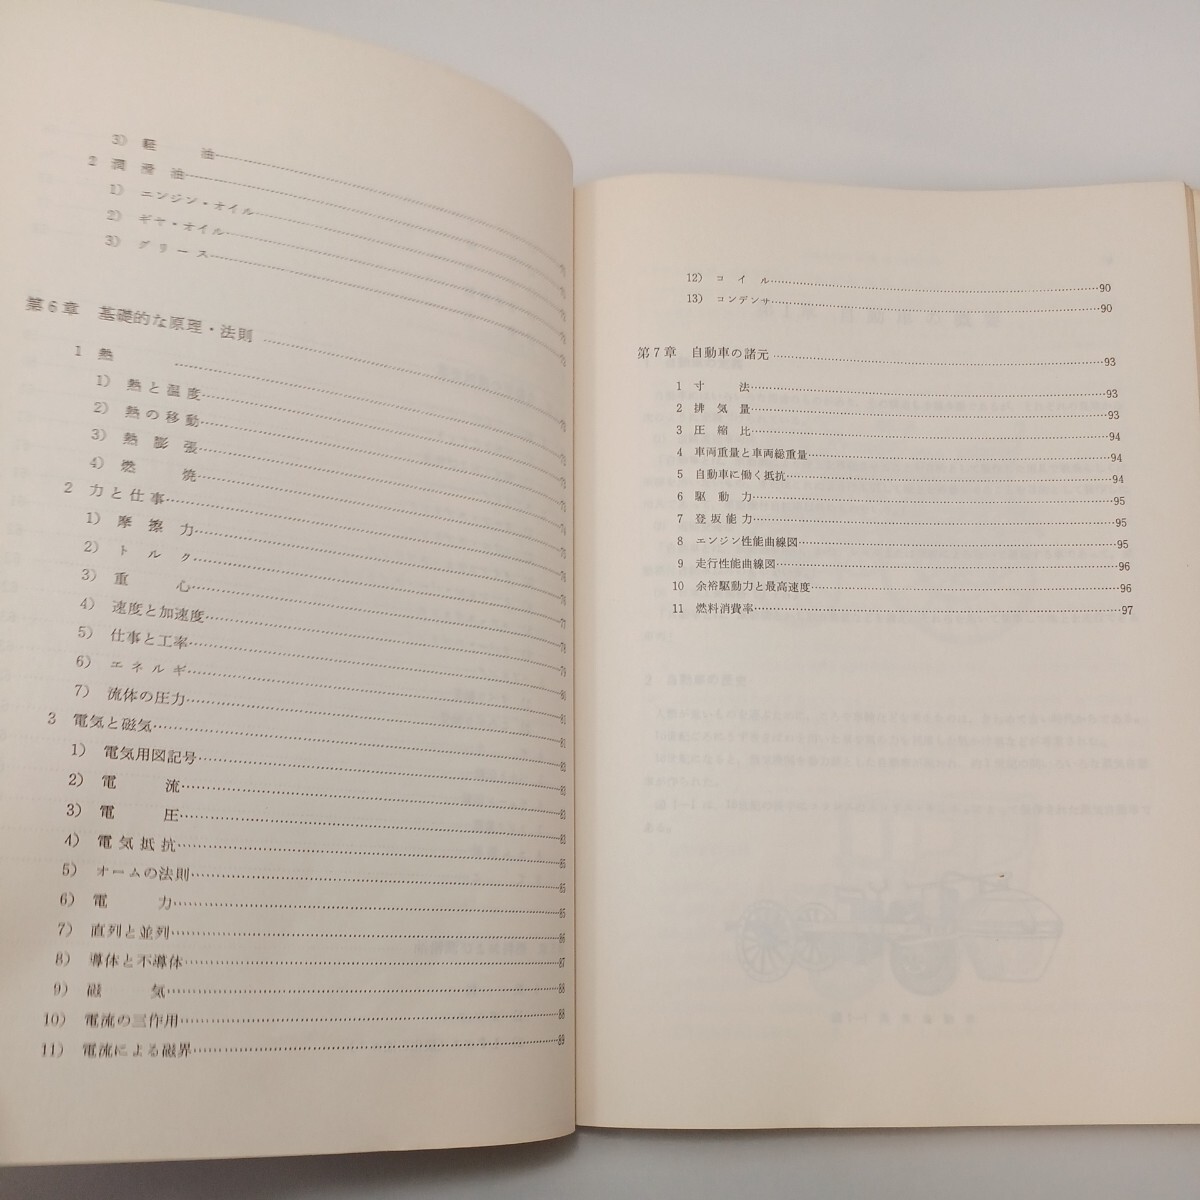 3) 軽 油
2 潤 滑 油
1) エンジン・オイル
2) ギヤ・オイル
3) グ リ ー ス
第6章 基礎的な原理・法則
1 熱
1) 熱 と 温 度
2) 熱 の 移 動
3) 熱 膨 張
4) 燃 焼
2 力 と 仕 事
1) 摩 擦 力
2) ト ル ク
3) 重 心
4) 速度と加速度
5) 仕事と工率
6) エ ネ ル ギ
7) 流体の圧力
3 電気と磁気
1) 電気用図記号
2) 電 流
3) 電 圧
4) 電 気 抵 抗
5) オームの法則
6) 電 力
7) 直列と並列
8) 導体と不導体 87
9) 磁 気 88
10) 電流の三作用 88
11) 電流による磁界 89
12) コ イ ル 90
13) コンデンサ 90
第7章 自動車の諸元 93
1 寸 法 93
2 排 気 量 93
3 圧 縮 比 94
4 車両重量と車両総重量 94
5 自動車に働く抵抗 94
6 駆 動 力 95
7 登 坂 能 力 95
8 エンジン性能曲線図 95
9 走行性能曲線図 96
10 余裕駆動力と最高速度 96
11 燃料消費率 97